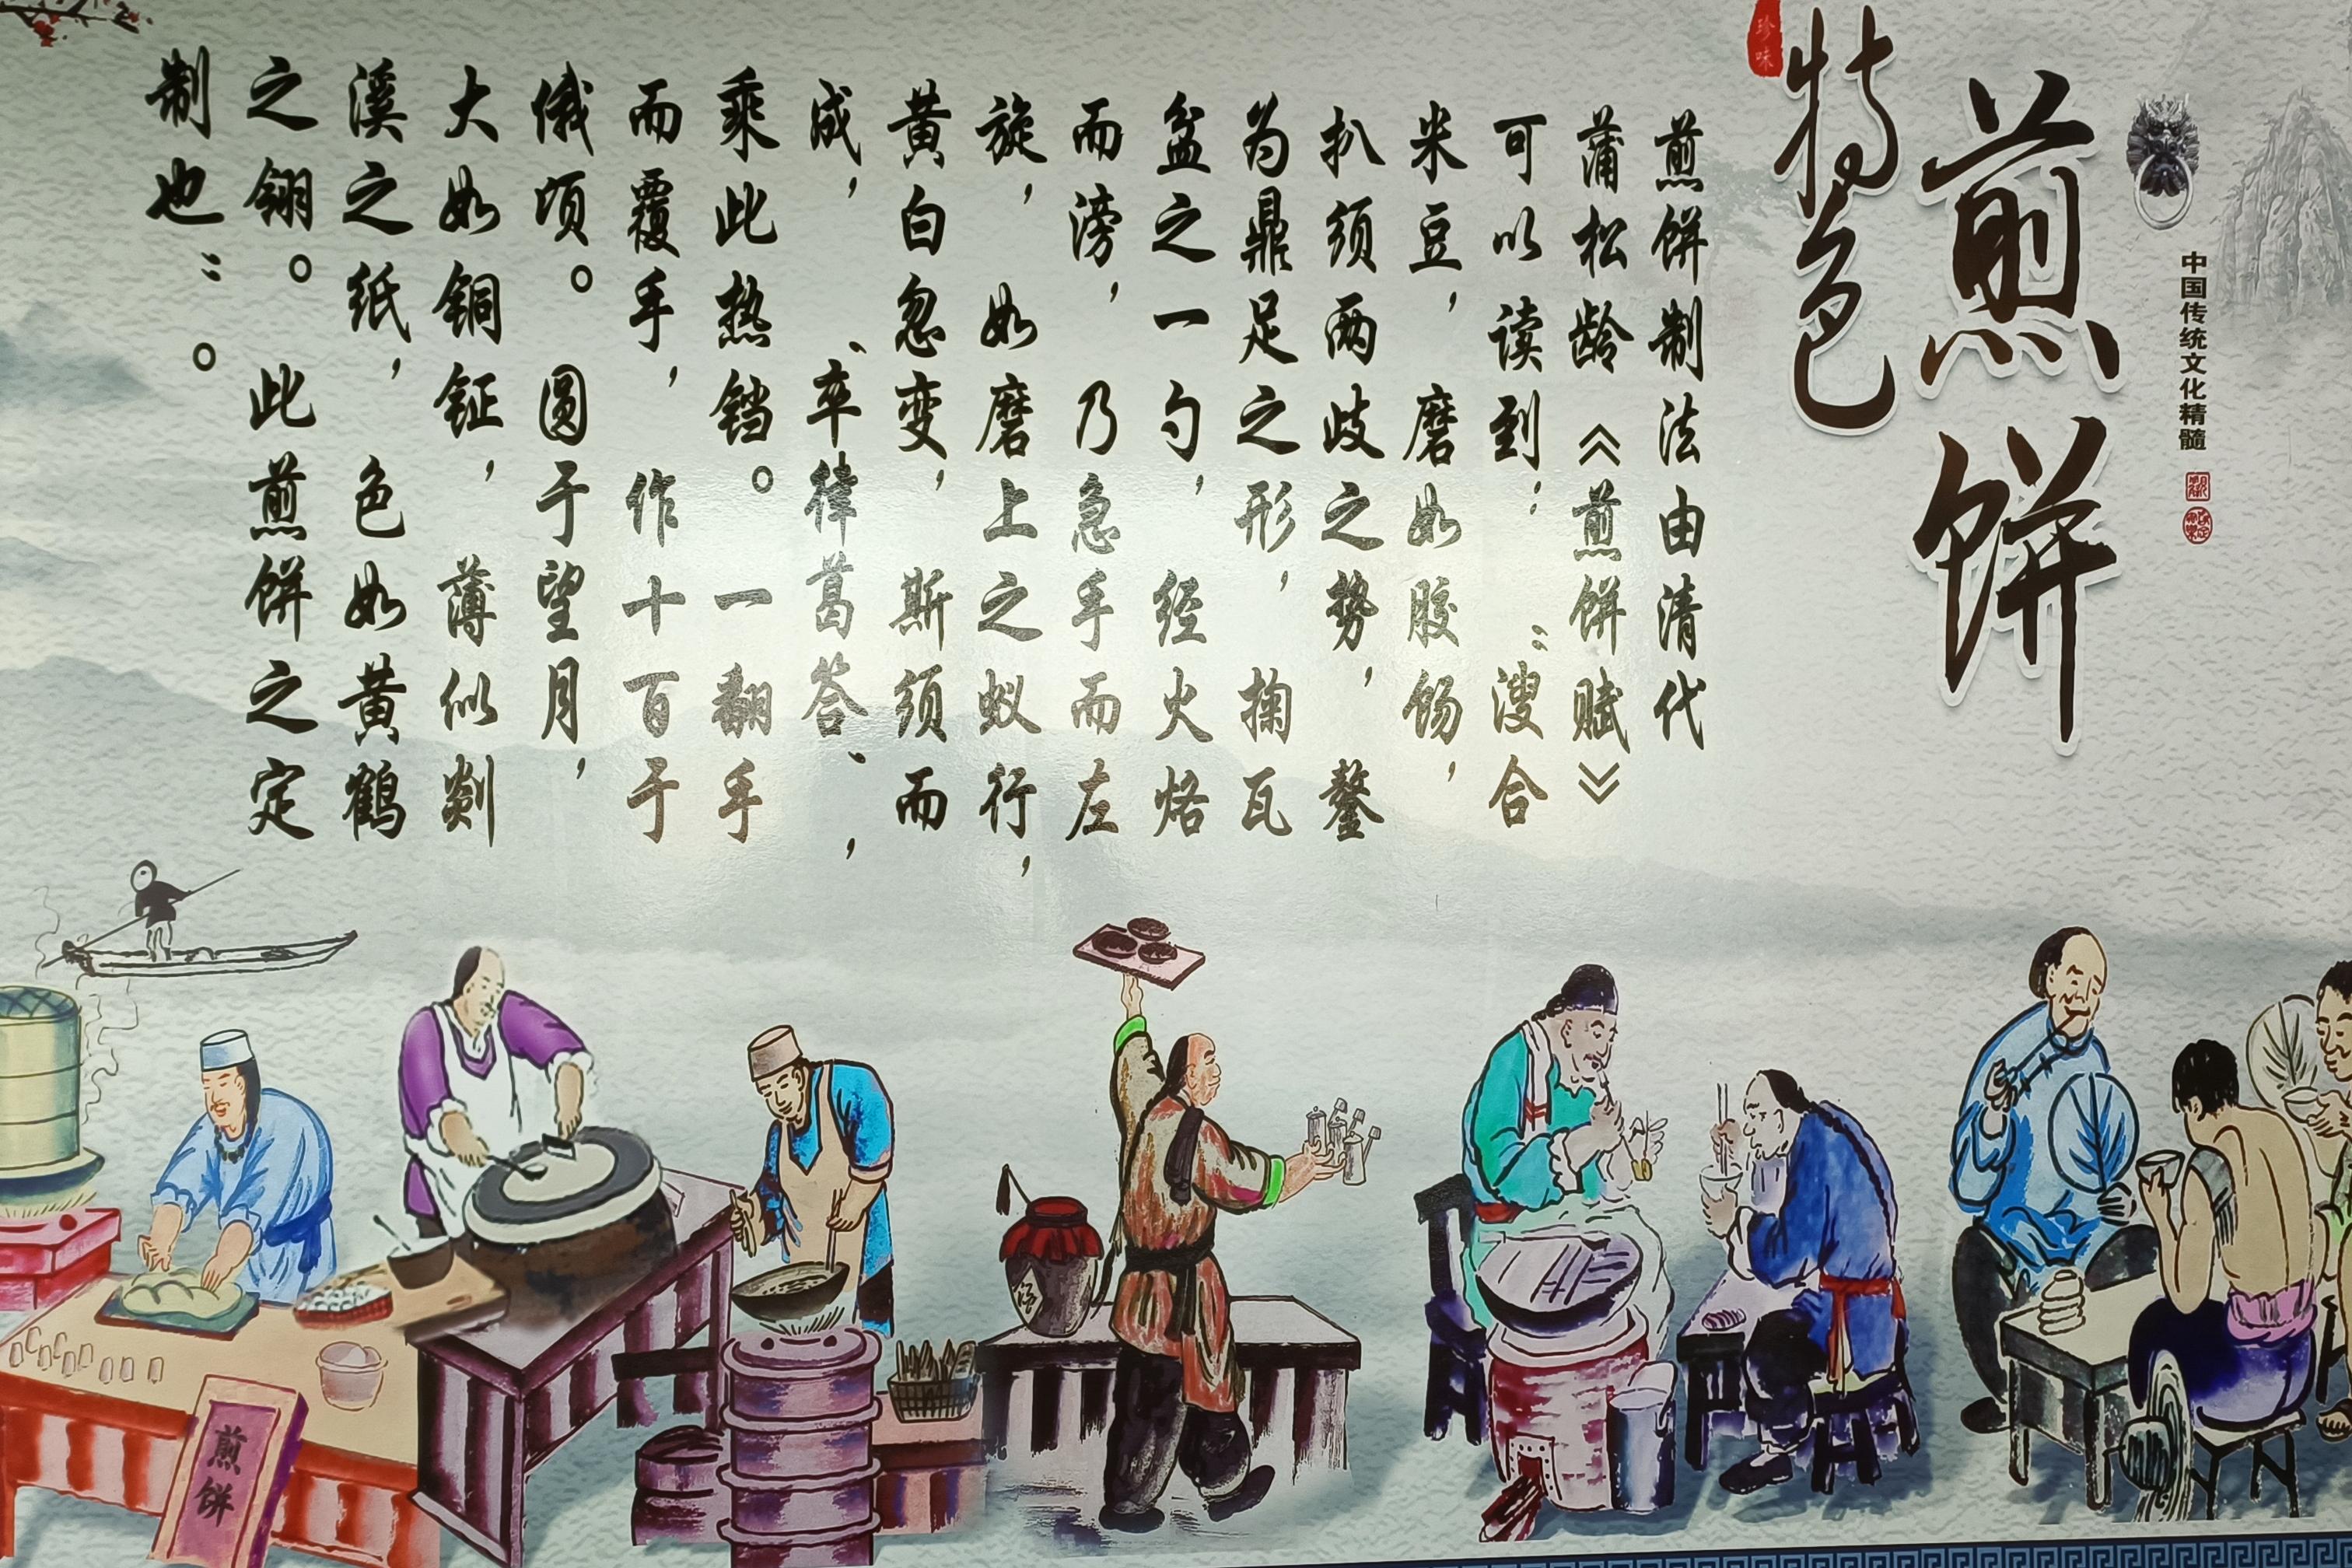 中国传统文化精髓
煎饼
特色
珍味
煎饼制法由清代
蒲松龄《煎饼赋》
可以读到：“溲合
米豆，磨如胶饧，
扒须两歧之势，鏊
为鼎足之形，掬瓦
盆之一勺，经火烙
而滂，乃急手而左
旋，如磨上之蚁行，
黄白忽变，斯须而
成，‘卒律葛答’，
乘此热铛。一翻手
而覆手，作十百于
俄顷。圆于望月，
大如铜钲，薄似剡
溪之纸，色如黄鹤
之翎。此煎饼之定
制也”。
煎饼